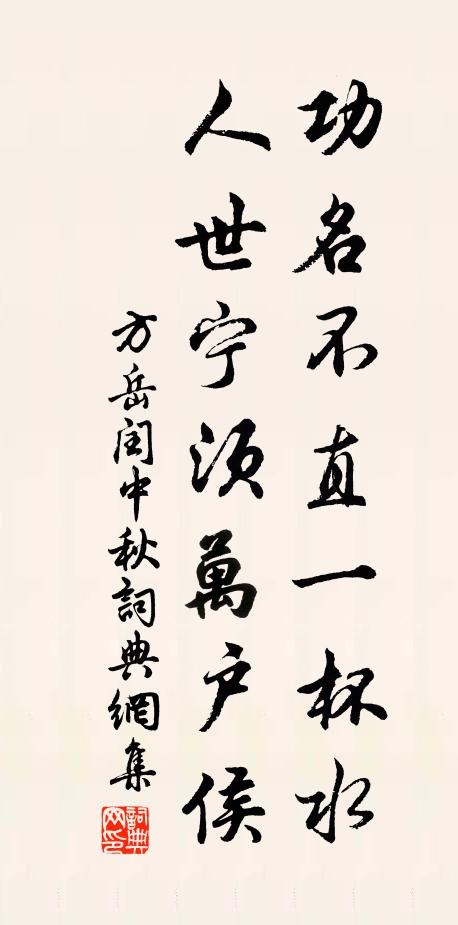 功名不直一杯水
人世宁须萬户侯
方岳闰中秋詞典網集
詞典
网印